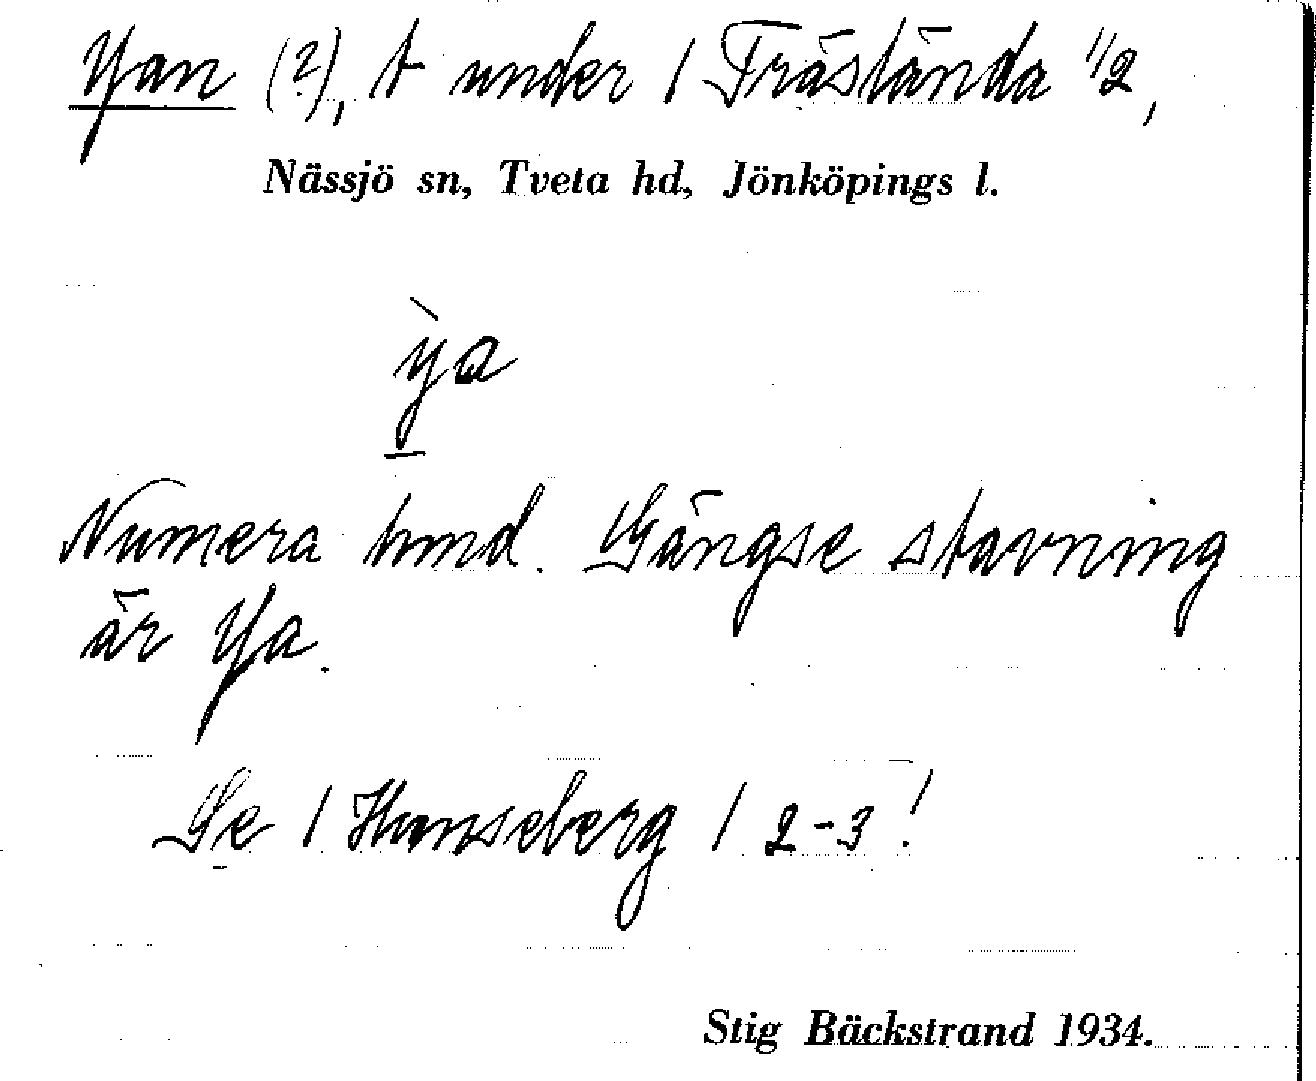 Yan (?), t under / Träslända 1/2,
Nässjö sn, Tveta hd, Jönköpings l.
ỳa
Numera hmd. Gängse stavning
är Ya.
Se / Hunseberg / 2-3!
Stig Bäckstrand 1934.